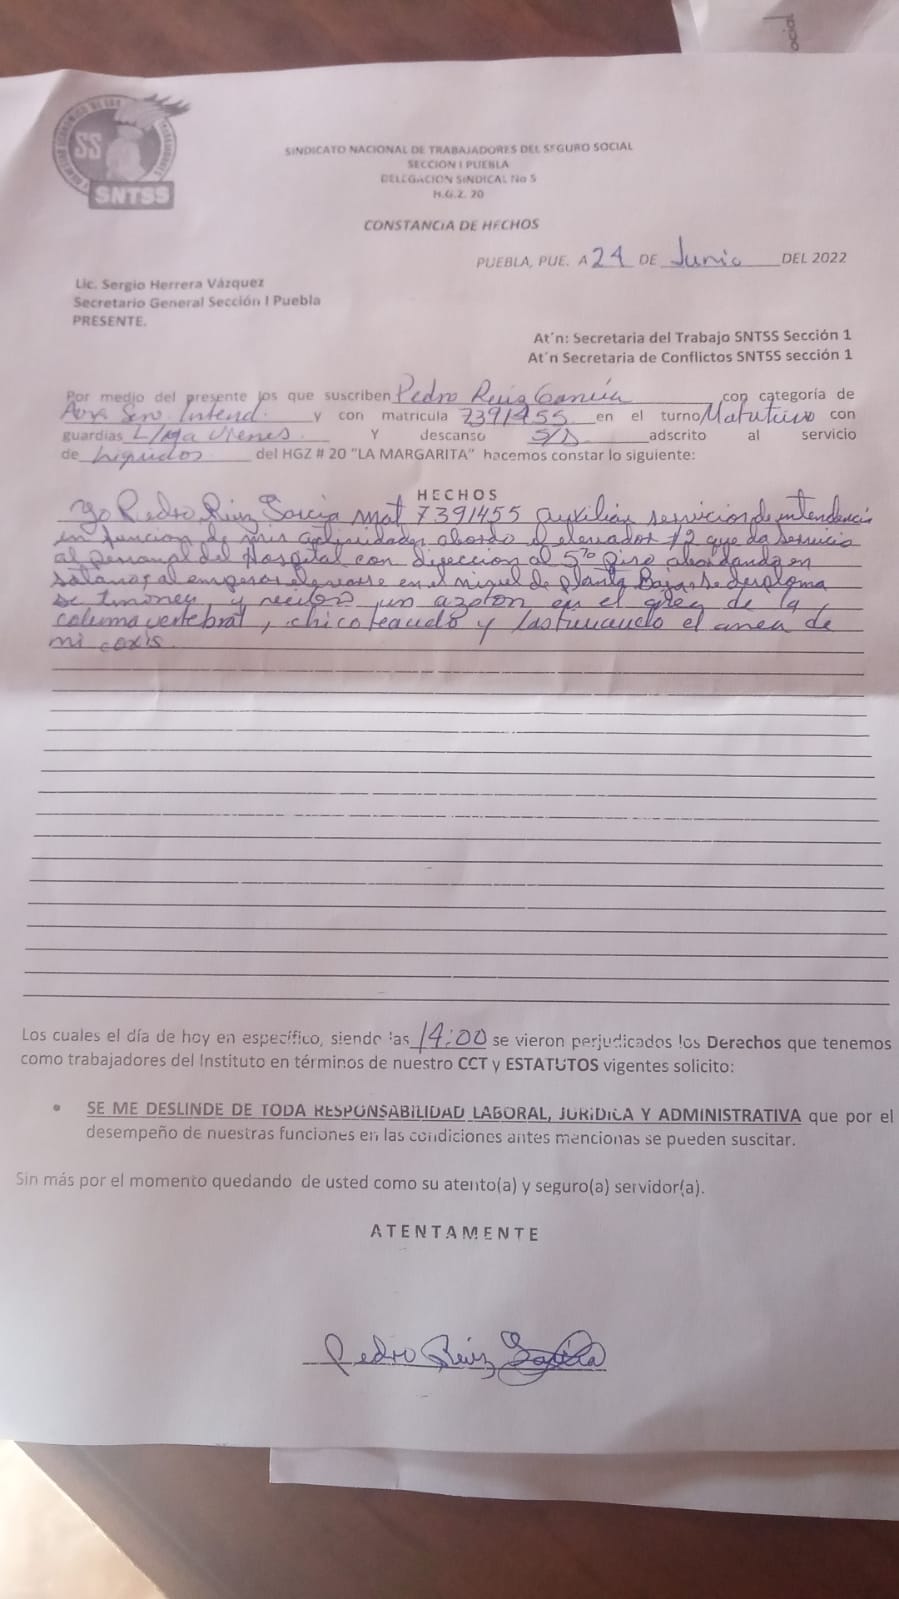 ocial
SS
SNTSS
SINDICATO NACIONAL DE TRABAJADORES DEL SEGURO SOCIAL
SECCION I PUEBLA
DELEGACION SINDICAL No 5
H.G.Z. 20
CONSTANCIA DE HECHOS
PUEBLA, PUE. A 24 DE Junio DEL 2022
Lic. Sergio Herrera Vázquez
Secretario General Sección I Puebla
PRESENTE.
At´n: Secretaria del Trabajo SNTSS Sección 1
At´n Secretaria de Conflictos SNTSS sección 1
Por medio del presente los que suscriben Pedro Ruiz García con categoría de
Serv. Intend. y con matricula 7391455 en el turno Matutino con
guardias L/ Viernes Y descanso S/D adscrito al servicio
de del HGZ # 20 "LA MARGARITA" hacemos constar lo siguiente:
HECHOS
Yo Pedro Ruiz Garcia mat 7391455 auxiliar servicios de intendencia
en funcion de mis actividades abordo el elevador que da servicio
al personal del Hospital con direccion al 5to Piso abordando en
sótano, al empezar elevarse en el nivel de planta Baja, se desploma
y recibo un azoton en el area de la
columna vertebral, chicoteando y lastimando el area de
mi coxis.
Los cuales el día de hoy en específico, siendo las 14:00 se vieron perjudicados los Derechos que tenemos
como trabajadores del Instituto en términos de nuestro CCT y ESTATUTOS vigentes solicito:
• SE ME DESLINDE DE TODA RESPONSABILIDAD LABORAL, JURÍDICA Y ADMINISTRATIVA que por el
desempeño de nuestras funciones en las condiciones antes mencionas se pueden suscitar.
Sin más por el momento quedando de usted como su atento(a) y seguro(a) servidor(a).
ATENTAMENTE
Pedro Ruiz García